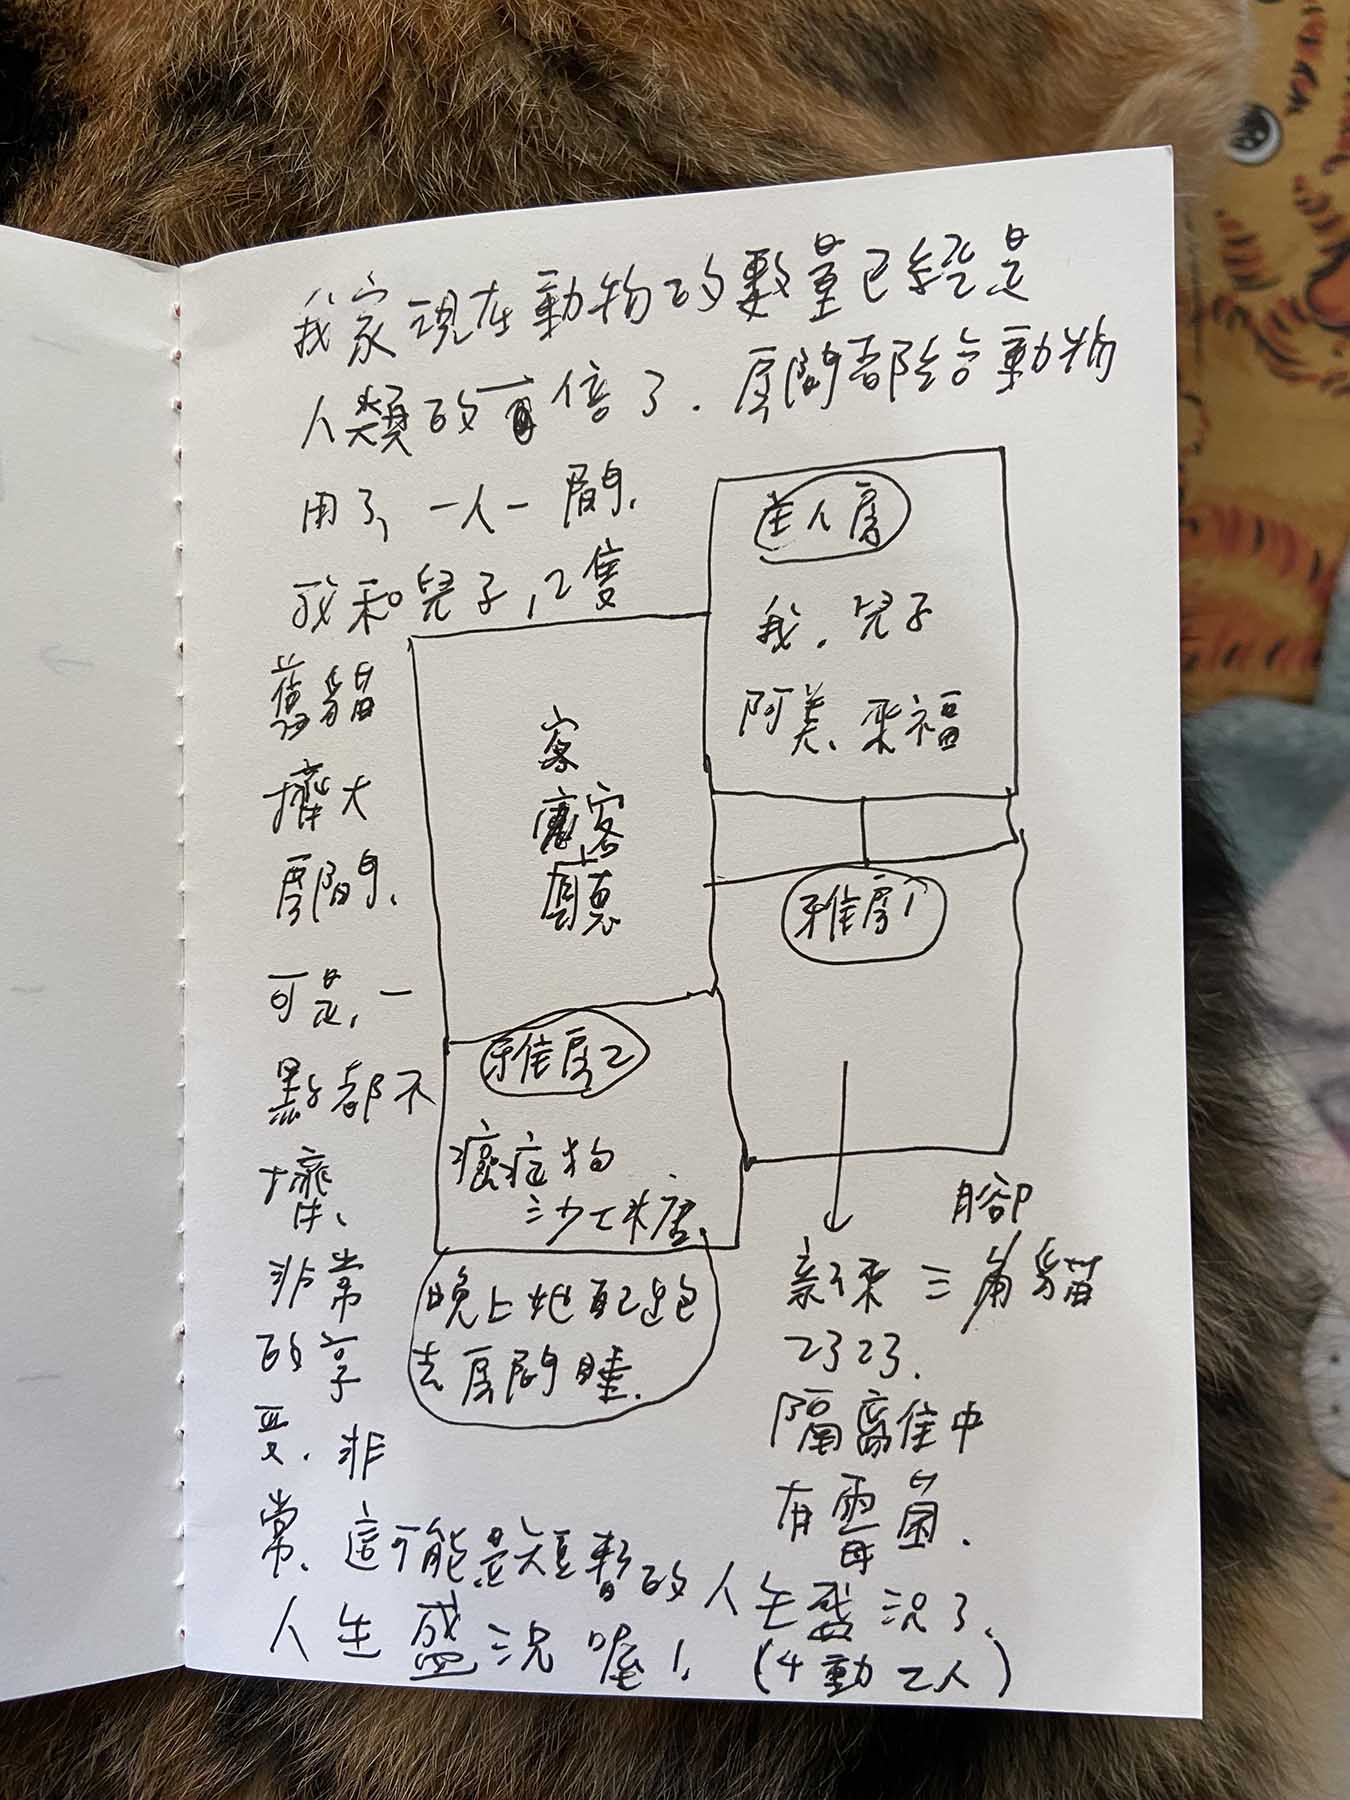 我家現在動物的數量已經是
人類的倍了. 房間都給動物
用了, 一人一間.
我和兒子,2隻
舊貓
擠大
房間、
可是,一
點都不
擠、
非常
的享
受.非
常、這可能是短暫的人生盛況了.
人生盛況喔!. (4動2人)
主人房
我.兒子
阿美、來福
客
廳
雅房1
雅房2
癌症狗
沙士糖.
晚上她自己跑
去房間睡.
腳
新來三角貓
2323.
隔離住中
有霉菌.